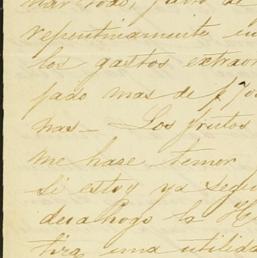 mar todo, para de
repentinamente en
los gastos extraor
pado mas de $700
nas — Los frutos
me hase temer
si estoy ya segu
desahogo la H
tira una utilida